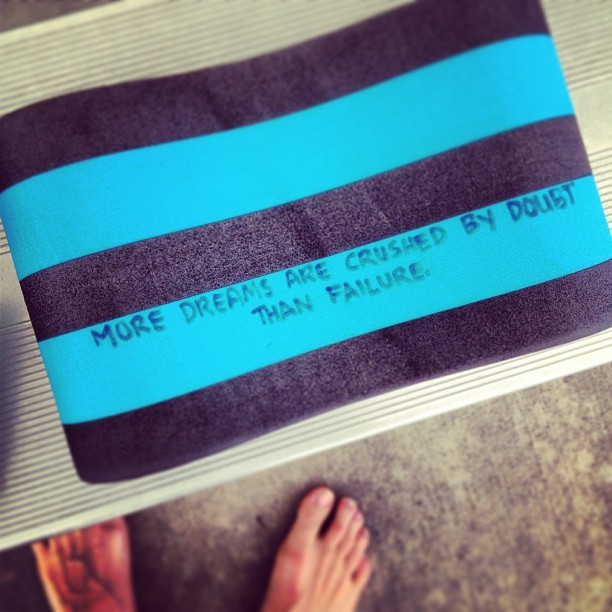 MORE DREAMS ARE CRUSHED BY DOUBT
THAN FAILURE.